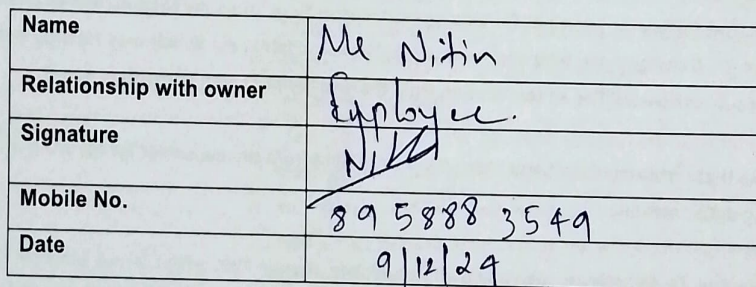 Name Mr Nitin
Relationship with owner Employee.
Signature Nit
Mobile No. 895888 3549
Date 9/12/24